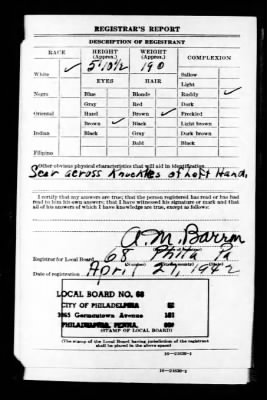 REGISTRAR'S REPORT
DESCRIPTION OF REGISTRANT
RACE HEIGHT (Approx.) WEIGHT (Approx.) COMPLEXION
5' 10 1/2 190
White ✓ EYES HAIR Sallow
Light
Negro Blue Blonde Ruddy ✓
Gray Red Dark
Oriental Hazel Brown ✓ Freckled
Brown ✓ Black Light brown
Indian Black Gray Dark brown
Bald Black
Filipino
Other obvious physical characteristics that will aid in identification
Scar across Knuckles of Left Hand.
I certify that my answers are true; that the person registered has read or has had
read to him his own answers; that I have witnessed his signature or mark and that
all of his answers of which I have knowledge are true, except as follows:
A. M. Barron
Registrar for Local Board 68 Phila Pa
(Number) (City or county) (State)
Date of registration April 27, 1942
LOCAL BOARD NO. 68
CITY OF PHILADELPHIA
3965 Germantown Avenue 101
PHILADELPHIA, PENNA.
(STAMP OF LOCAL BOARD)
(The stamp of the Local Board having jurisdiction of the registrant
shall be placed in the above space)